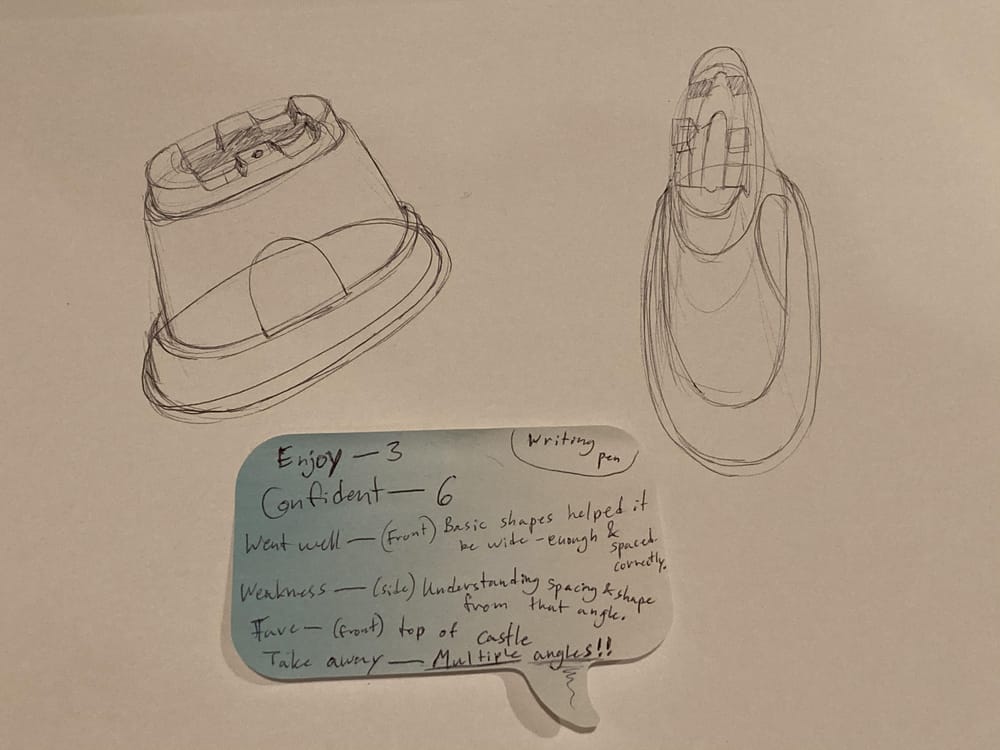 Enjoy — 3
Writing
pen
Confident — 6
Went well — (Front) Basic shapes helped it
be wide-enough & spaced
correctly.
Weakness — (side) Understanding spacing & shape
from that angle.
Fave — (front) top of castle
Take away — Multiple angles!!